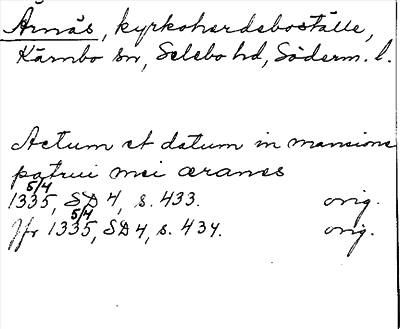 Årnäs, kyrkoherdeboställe,
Kärnbo sn, Selebo hd, Söderm. l.
Actum et datum in mansione
patrui mei æranes
5/4
1335, SD 4, s. 433. orig.
5/4
Jfr 1335, SD 4, s. 434. orig.